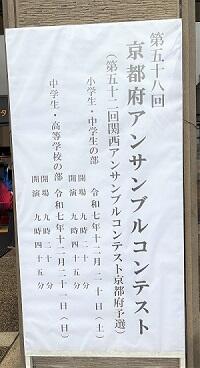 第五十八回
京都府アンサンブルコンテスト
(第五十二回関西アンサンブルコンテスト京都府予選)
小学生・中学生の部
令和七年十二月二十日(土)
開場 九時二十分
開演 九時四十五分
中学生・高等学校の部
令和七年十二月二十一日(日)
開場 九時二十分
開演 九時四十五分